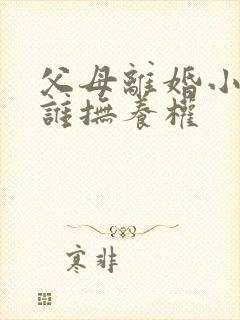 父母離婚小
誰撫養權
寒非